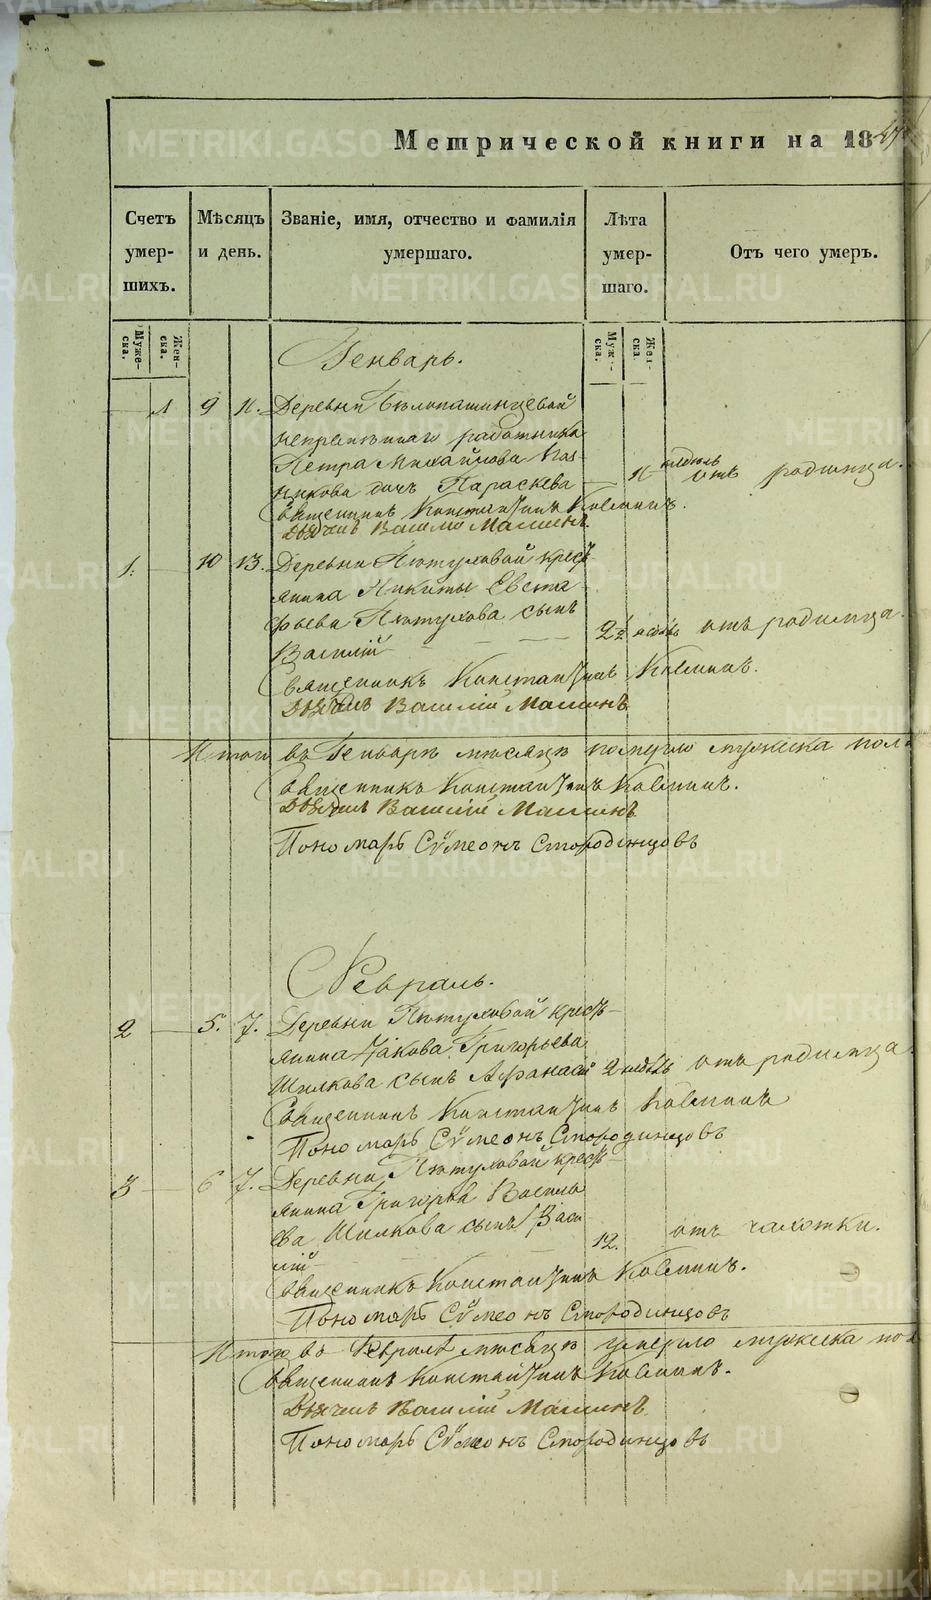 Метрической книги на 1847
Счетъ умершихъ.
Мѣсяцъ и день.
Званіе, имя, отчество и фамилія умершаго.
Лѣта умершаго.
Отъ чего умеръ.
Мужеска.
Женска.
Мужеска.
Женска.
Генварь.
— 1 9 11. Деревни Бѣлопашинцевой
непремѣннаго работника
Петра Михайлова
дочь Параскева 11 недѣль отъ родимца.
Священникъ Константинъ
Дьячекъ Василій
1. — 10 13. Деревни Пѣтуховой крестьянина Никиты Евстафьева Пѣтухова сынъ
Василій 2½ отъ родимца.
Священникъ Константинъ
Дьячекъ Василій
Итого въ Генварѣ мѣсяцѣ померло мужеска пола
Священникъ Константинъ
Дьячекъ Василій
Пономарь Сѵмеонъ Смородинцовъ
Февраль.
2 — 5. 7. Деревни Пѣтуховой крестьянина Іакова Григорьева
Шилкова сынъ Афанасій 2 недѣль отъ родимца.
Священникъ Константинъ
Пономарь Сѵмеонъ Смородинцовъ
3 — 6 7. Деревни Пѣтуховой крестьянина Григорья Васильева Шилкова сынъ Василій 12. отъ чахотки.
Священникъ Константинъ
Пономарь Сѵмеонъ Смородинцовъ
Итого въ Февралѣ мѣсяцѣ умерло мужеска пола
Священникъ Константинъ
Дьячекъ Василій
Пономарь Сѵмеонъ Смородинцовъ
METRIKI.GASO-URAL.RU